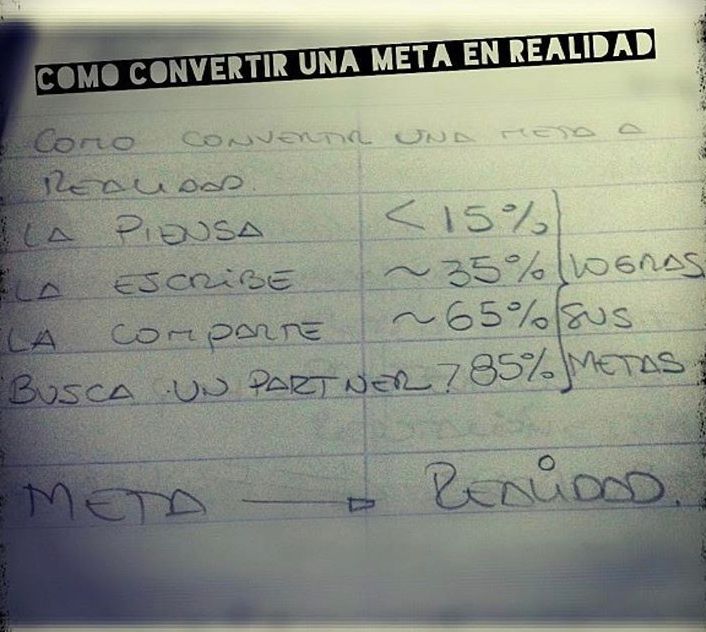 COMO CONVERTIR UNA META EN REALIDAD
COMO CONVERTIR UNA META A
REALIDAD.
LA PIENSA < 15%
LA ESCRIBE ~35% LOGRAS
LA COMPARTE ~65% SUS
BUSCA UN PARTNER > 85% METAS
META → REALIDAD.